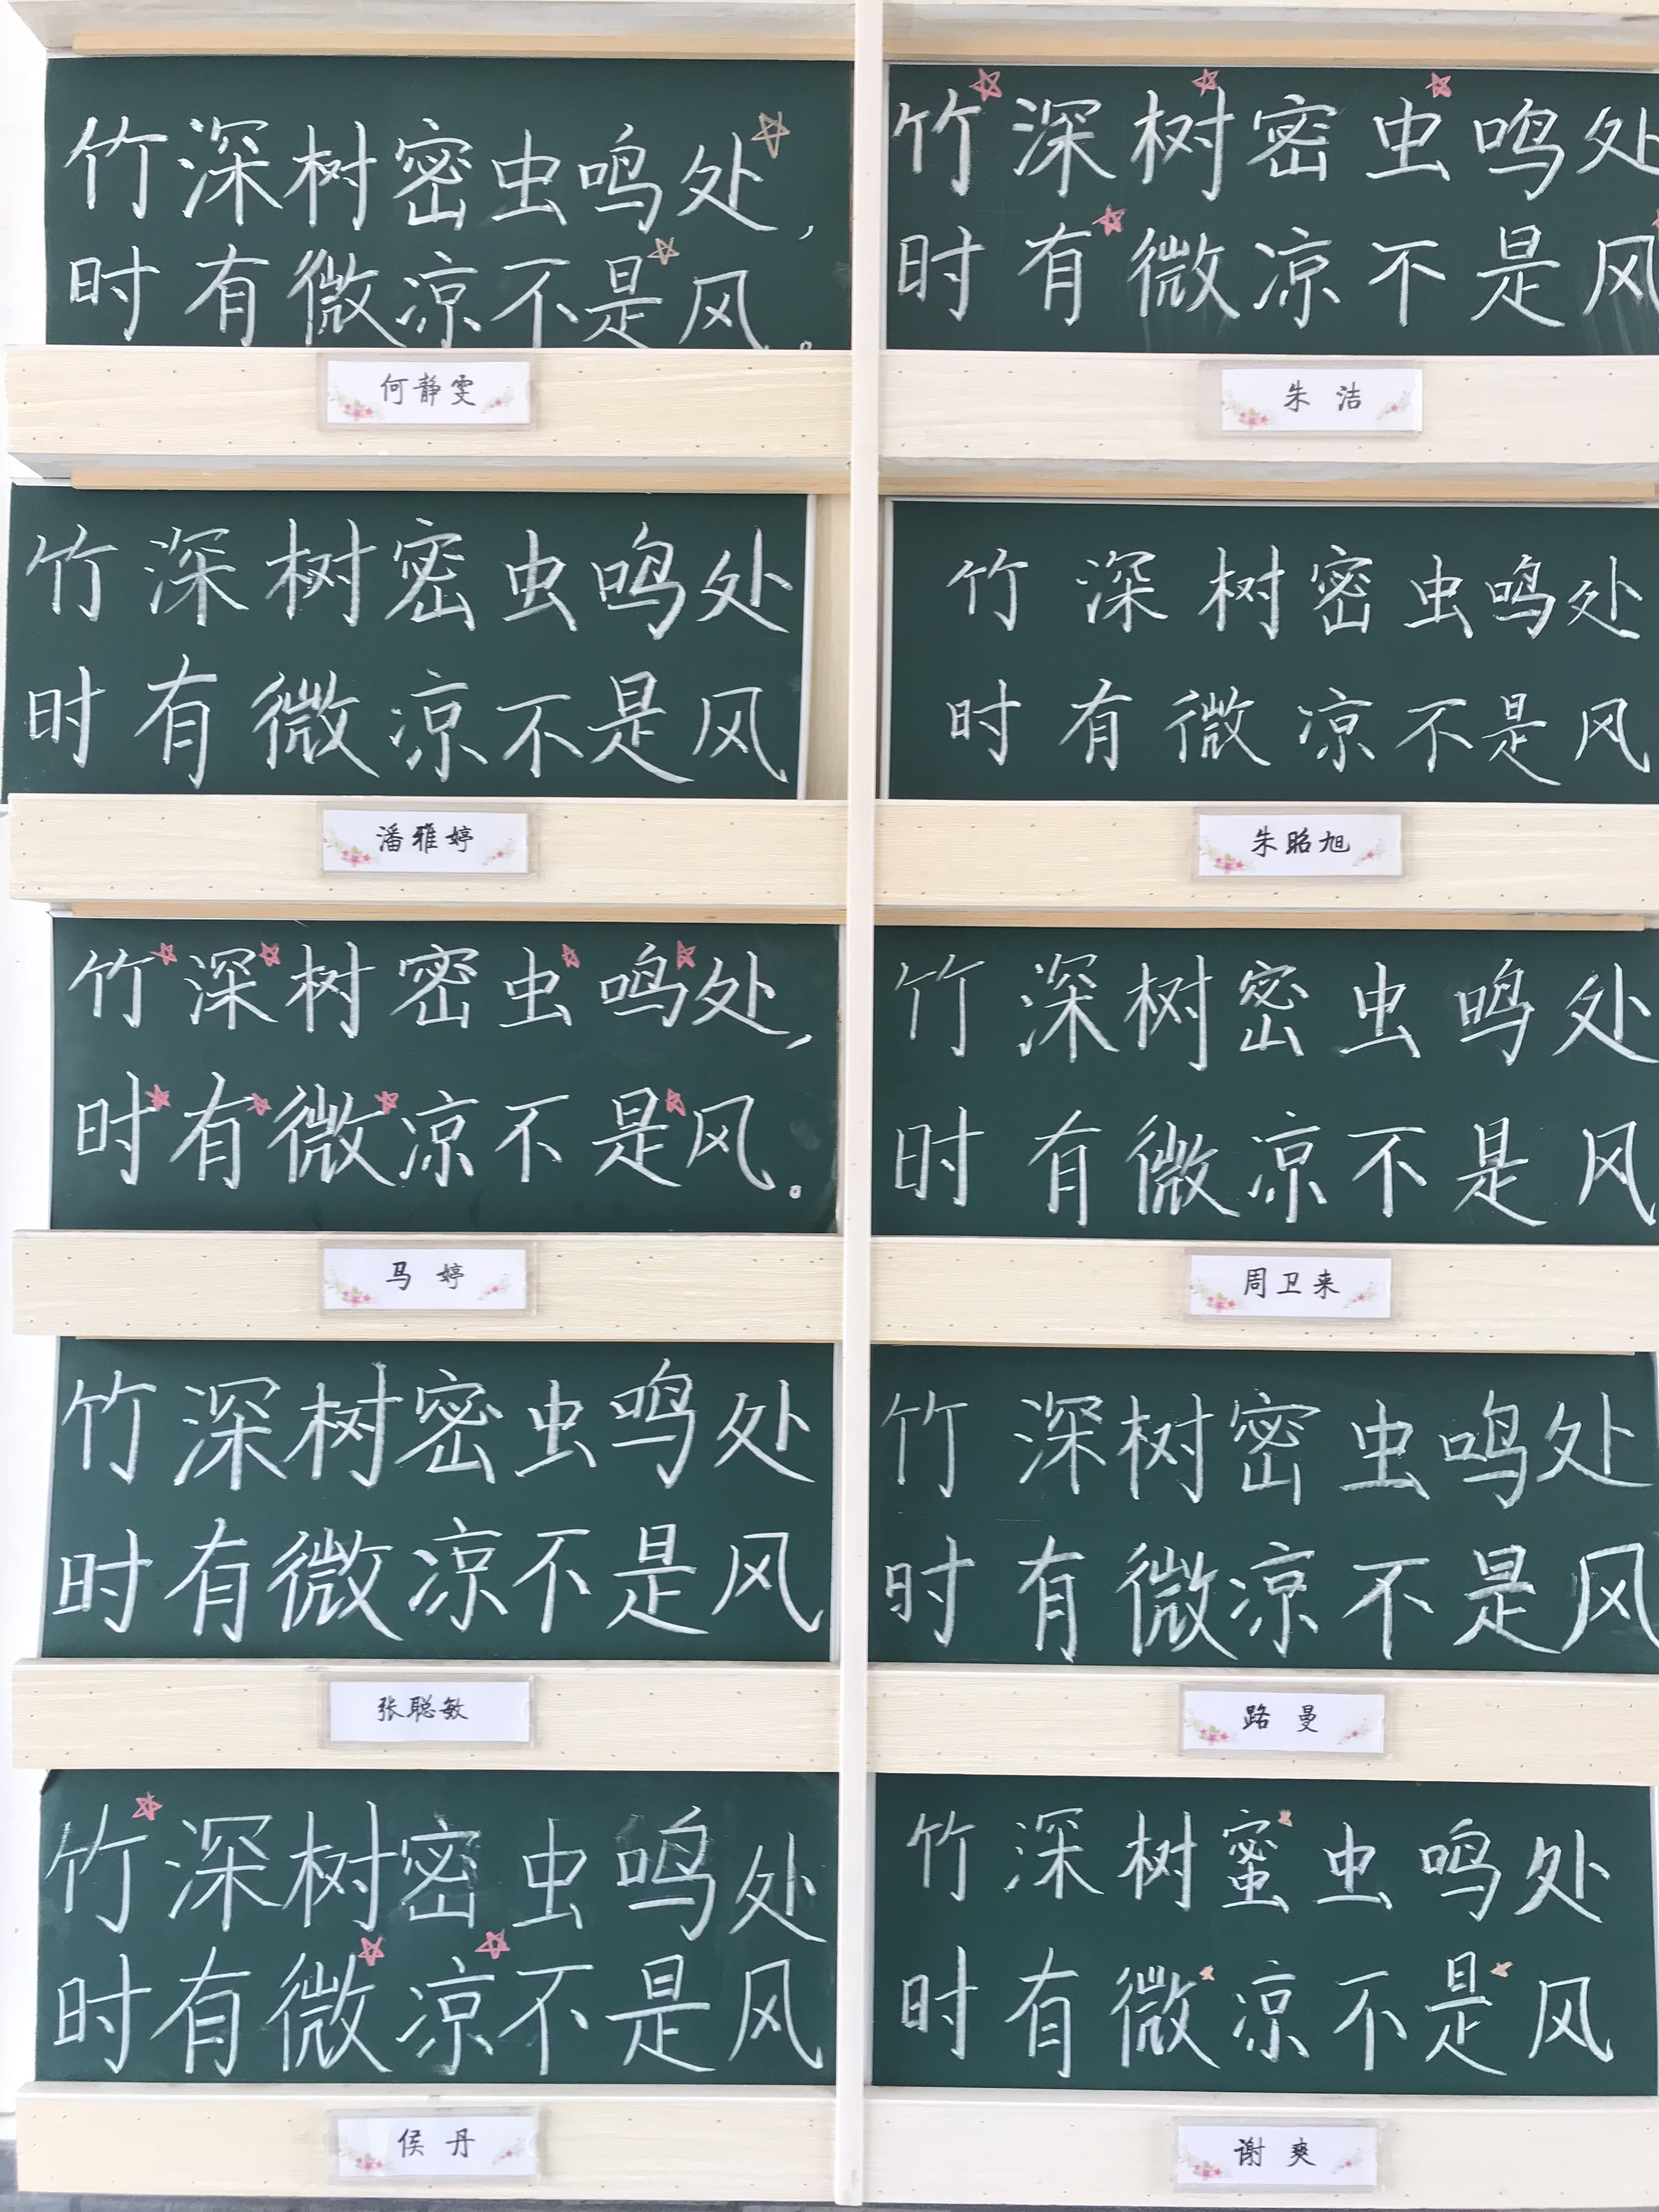 竹深树密虫鸣处,
时有微凉不是风。
何静雯
竹深树密虫鸣处
时有微凉不是风
朱洁
竹深树密虫鸣处
时有微凉不是风
潘雅婷
竹深树密虫鸣处
时有微凉不是风
朱昭旭
竹深树密虫鸣处,
时有微凉不是风。
马婷
竹深树密虫鸣处
时有微凉不是风
周卫来
竹深树密虫鸣处
时有微凉不是风
张聪敏
竹深树密虫鸣处
时有微凉不是风
路曼
竹深树密虫鸣处
时有微凉不是风
侯丹
竹深树蜜虫鸣处
时有微凉不是风
谢爽